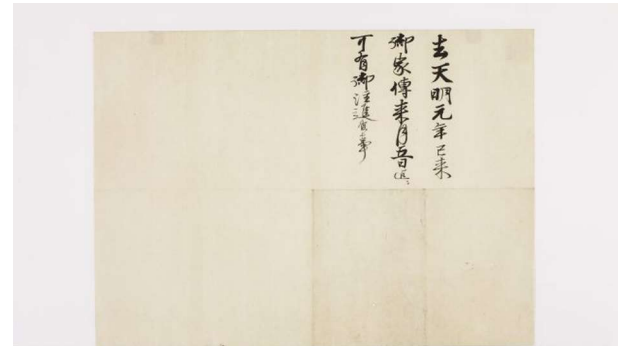 去天明元年已来
御家傳来月五日迄ニ
可有御注進候事